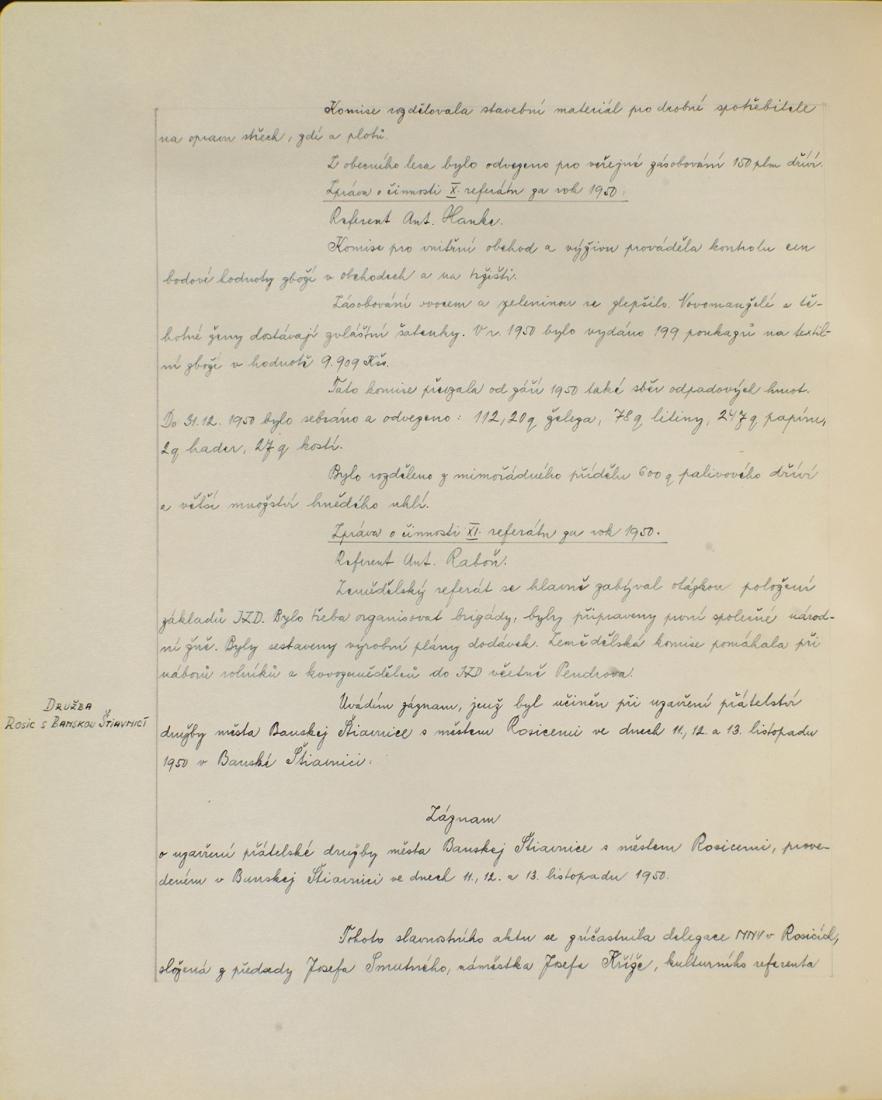 Komise rozdělovala stavební materiál pro drobné spotřebitele
na opravu střech, zdí a plotů.
Z obecného lesa bylo odvezeno pro veřejné zásobování 150 plm dříví.
Zpráva o činnosti X. referátu za rok 1950.
Referent Ant. Hanke.
Komise pro vnitřní obchod a výživu prováděla kontrolu cen
bodové hodnoty zboží v obchodech a na tržišti.
Zásobování ovocem a zeleninou se zlepšilo. Novomanželé a tě-
hotné ženy dostávají zvláštní šatenky. V r. 1950 bylo vydáno 199 poukazů na textil-
ní zboží v hodnotě 9.909 Kčs.
Tato komise převzala od září 1950 také sběr odpadových hmot.
Do 31.12. 1950 bylo sebráno a odvezeno: 112,20 q železa, 78 q litiny, 247 q papíru,
2q hader, 27 q kostí.
Bylo rozděleno z mimořádného přídělu 600 q palivového dříví
a větší množství hnědého uhlí.
Zpráva o činnosti XI. referátu za rok 1950.
Referent Ant. Raboň.
Zemědělský referát se hlavně zabýval otázkou položení
základů JZD. Bylo třeba organisovat brigády, byly připraveny první společné národ-
ní žně. Byly sestaveny výrobní plány dodávek. Zemědělská komise pomáhala při
náboru rolníků a kovozemědělců do JZD včetně Pendrova.
DRUŽBA
ROSIC S BANSKOU ŠTIAVNICÍ
Uvádím záznam, jenž byl učiněn při uzavření přátelství
družby města Banskej Štiavnice s městem Rosicemi ve dnech 11., 12. a 13. listopadu
1950 v Banské Štiavnici.
Záznam
o uzavření přátelské družby města Banskej Štiavnice s městem Rosicemi, prove-
deném v Banskej Štiavnici ve dnech 11., 12. a 13. listopadu 1950.
Tohoto slavnostního aktu se zúčastnila delegace MNV v Rosicích,
složená z předsedy Josefa Smutného, náměstka Josefa Kříže, kulturního referenta